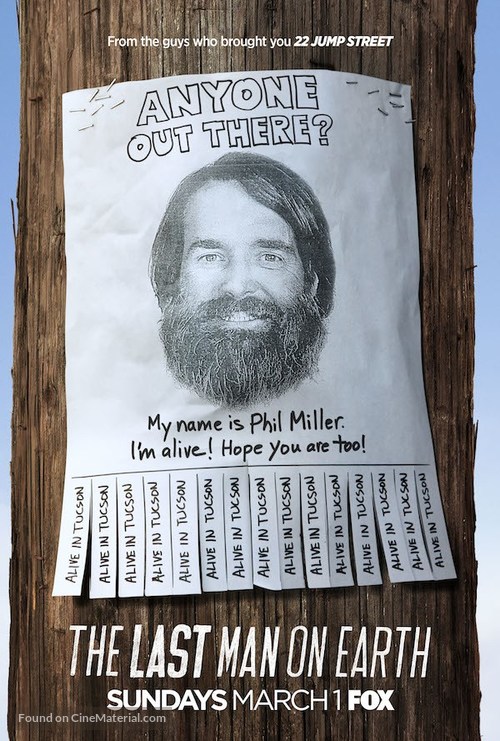 From the guys who brought you 22 JUMP STREET
ANYONE
OUT THERE?
My name is Phil Miller.
I'm alive! Hope you are too!
ALIVE IN TUCSON
ALIVE IN TUCSON
ALIVE IN TUCSON
ALIVE IN TUCSON
ALIVE IN TUCSON
ALIVE IN TUCSON
ALIVE IN TUCSON
ALIVE IN TUCSON
ALIVE IN TUCSON
ALIVE IN TUCSON
ALIVE IN TUCSON
ALIVE IN TUCSON
ALIVE IN TUCSON
ALIVE IN TUCSON
THE LAST MAN ON EARTH
SUNDAYS MARCH 1 FOX
Found on CineMaterial.com